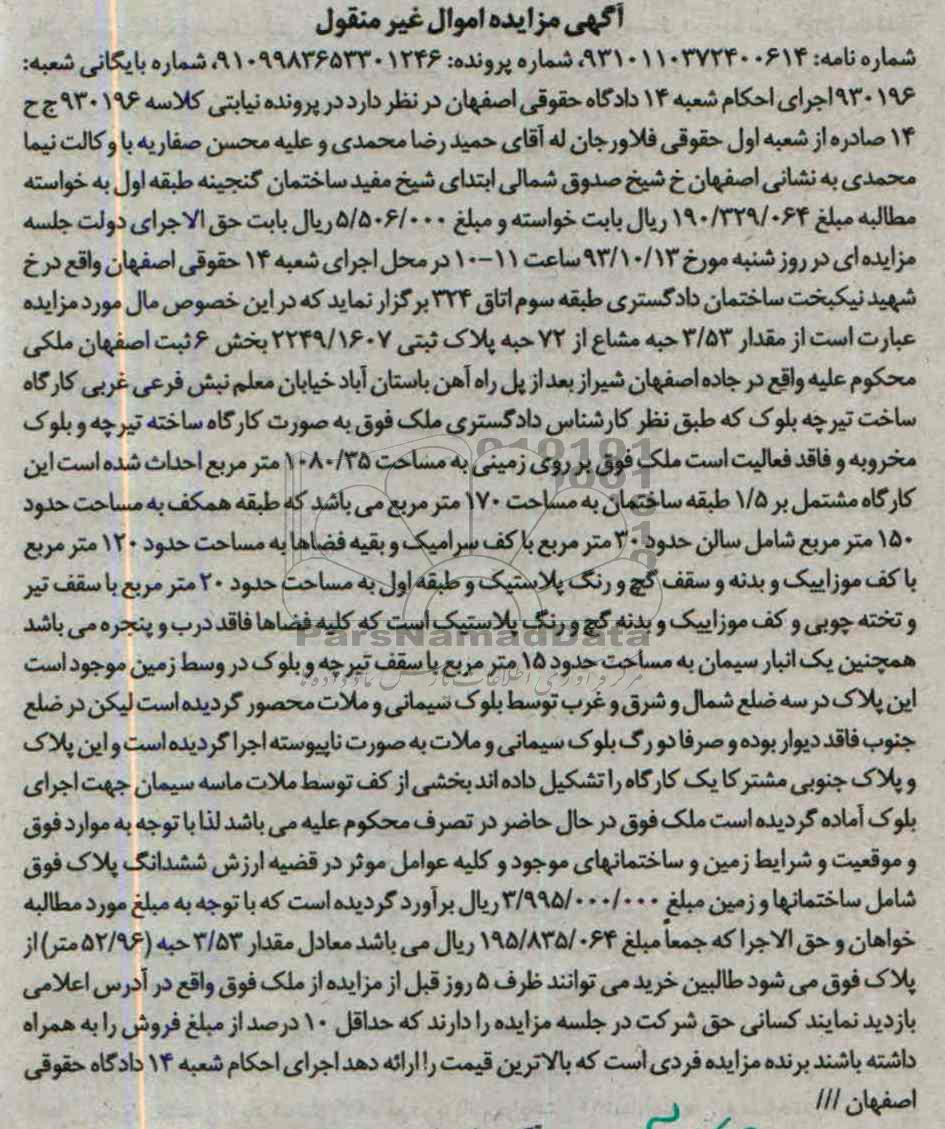 آگهی مزایده اموال غیر منقول
شماره نامه: ۹۳۱۰۱۱۰۳۷۲۴۰۰۶۱۴، شماره پرونده: ۹۱۰۹۹۸۳۶۵۳۳۰۱۲۴۶، شماره بایگانی شعبه:
۹۳۰۱۹۶ اجرای احکام شعبه ۱۴ دادگاه حقوقی اصفهان در نظر دارد در پرونده نیابتی کلاسه ۹۳۰۱۹۶ ج ح
۱۴ صادره از شعبه اول حقوقی فلاورجان له آقای حمید رضا محمدی و علیه محسن صفاریه با وکالت نیما
محمدی به نشانی اصفهان خ شیخ صدوق شمالی ابتدای شیخ مفید ساختمان گنجینه طبقه اول به خواسته
مطالبه مبلغ ۱۹۰/۳۲۹/۰۶۴ ریال بابت خواسته و مبلغ ۵/۵۰۶/۰۰۰ ریال بابت حق الاجرای دولت جلسه
مزایده ای در روز شنبه مورخ ۹۳/۱۰/۱۳ ساعت ۱۱-۱۰ در محل اجرای شعبه ۱۴ حقوقی اصفهان واقع در خ
شهید نیکبخت ساختمان دادگستری طبقه سوم اتاق ۳۲۴ برگزار نماید که در این خصوص مال مورد مزایده
عبارت است از مقدار ۳/۵۳ حبه مشاع از ۷۲ حبه پلاک ثبتی ۲۲۴۹/۱۶۰۷ بخش ۶ ثبت اصفهان ملکی
محکوم علیه واقع در جاده اصفهان شیراز بعد از پل راه آهن باستان آباد خیابان معلم نبش فرعی غربی کارگاه
ساخت تیرچه بلوک که طبق نظر کارشناس دادگستری ملک فوق به صورت کارگاه ساخته تیرچه و بلوک
مخروبه و فاقد فعالیت است ملک فوق بر روی زمینی به مساحت ۱۰۸۰/۳۵ متر مربع احداث شده است این
کارگاه مشتمل بر ۱/۵ طبقه ساختمان به مساحت ۱۷۰ متر مربع می باشد که طبقه همکف به مساحت حدود
۱۵۰ متر مربع شامل سالن حدود ۳۰ متر مربع با کف سرامیک و بقیه فضاها به مساحت حدود ۱۲۰ متر مربع
با کف موزاییک و بدنه و سقف گچ و رنگ پلاستیک و طبقه اول به مساحت حدود ۲۰ متر مربع با سقف تیر
و تخته چوبی و کف موزاییک و بدنه گچ و رنگ پلاستیک است که کلیه فضاها فاقد درب و پنجره می باشد
ParsNamadData
همچنین یک انبار سیمان به مساحت حدود ۱۵ متر مربع با سقف تیرچه و بلوک در وسط زمین موجود است
این پلاک در سه ضلع شمال و شرق و غرب توسط بلوک سیمانی و ملات محصور گردیده است لیکن در ضلع
جنوب فاقد دیوار بوده و صرفا دو رگ بلوک سیمانی و ملات به صورت ناپیوسته اجرا گردیده است و این پلاک
و پلاک جنوبی مشترکا یک کارگاه را تشکیل داده اند بخشی از کف توسط ملات ماسه سیمان جهت اجرای
بلوک آماده گردیده است ملک فوق در حال حاضر در تصرف محکوم علیه می باشد لذا با توجه به موارد فوق
و موقعیت و شرایط زمین و ساختمانهای موجود و کلیه عوامل موثر در قضیه ارزش ششدانگ پلاک فوق
شامل ساختمانها و زمین مبلغ ۳/۹۹۵/۰۰۰/۰۰۰ ریال برآورد گردیده است که با توجه به مبلغ مورد مطالبه
خواهان و حق الاجرا که جمعاً مبلغ ۱۹۵/۸۳۵/۰۶۴ ریال می باشد معادل مقدار ۳/۵۳ حبه (۵۲/۹۶ متر) از
پلاک فوق می شود طالبین خرید می توانند ظرف ۵ روز قبل از مزایده از ملک فوق واقع در آدرس اعلامی
بازدید نمایند کسانی حق شرکت در جلسه مزایده را دارند که حداقل ۱۰ درصد از مبلغ فروش را به همراه
داشته باشند برنده مزایده فردی است که بالاترین قیمت را ارائه دهد اجرای احکام شعبه ۱۴ دادگاه حقوقی
اصفهان ///